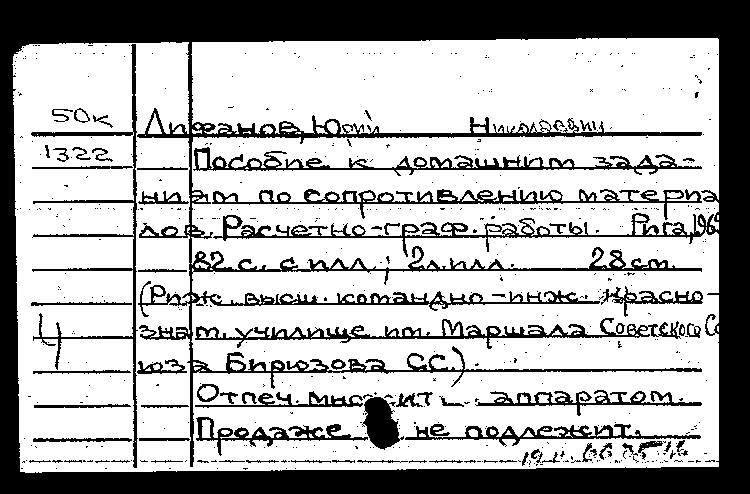 50к Лифанов, Юрий Николаевич
1322 Пособие к домашним зада-
ниям по сопротивлению материа
лов. Расчетно-граф. работы. Рига, 196
82 с. с илл.; 2 л. илл. 28 см.
(Риж. высш. командно-инж. красно-
знам. училище им. Маршала Советского Со
юза Бирюзова С.С.).
Ч
Отпеч. множит. аппаратом.
Продаже не подлежит.